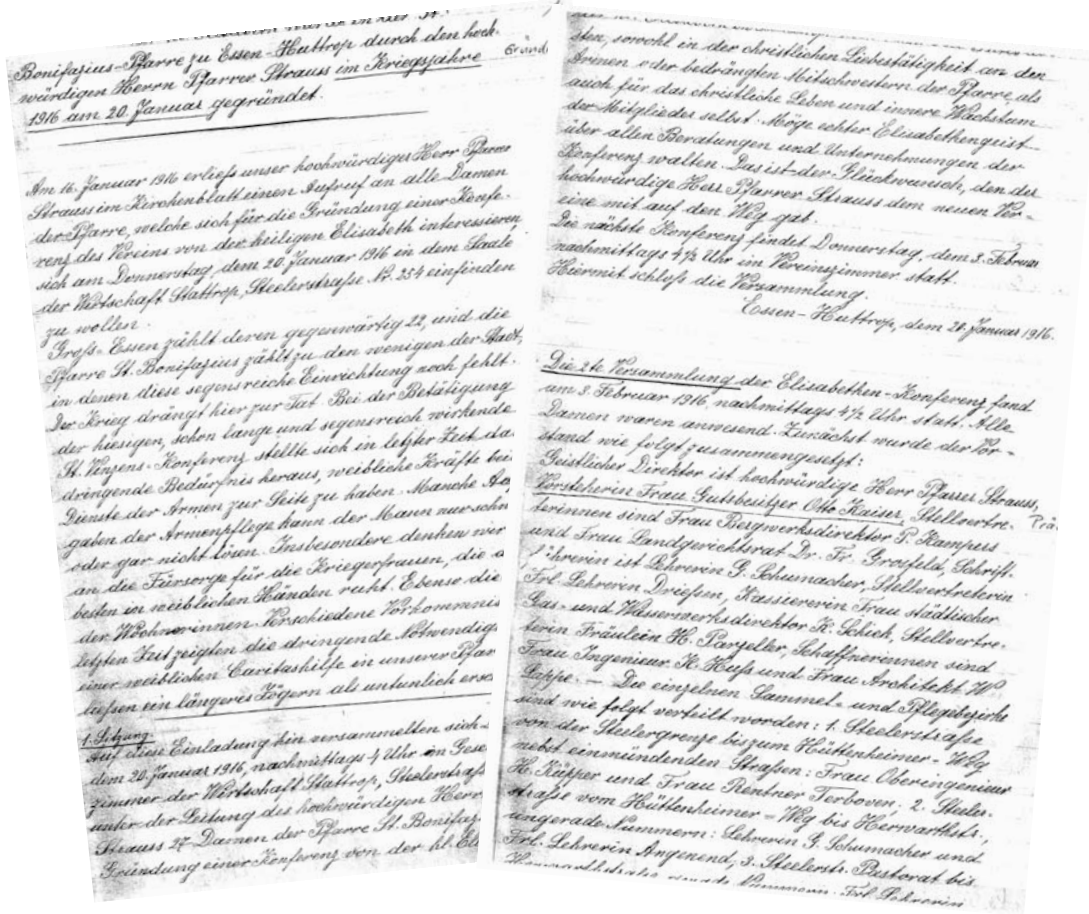 Bonifazius-Pfarre zu Essen-Huttrop durch den hoch-
würdigen Herrn Pfarrer Strauss im Kriegsjahre
1916 am 20. Januar gegründet.
Am 16. Januar 1916 erließ unser hochwürdiger Herr Pfarrer
Strauss im Kirchenblatt einen Aufruf an alle Damen
der Pfarre, welche sich für die Gründung einer Konfe-
renz des Vereins von der heiligen Elisabeth interessieren,
sich am Donnerstag, dem 20. Januar 1916 in dem Saale
der Wirtschaft Stattrop, Steelerstraße Nr. 234 einfinden
zu wollen.
Groß-Essen zählt deren gegenwärtig 22, und die
Pfarre St. Bonifazius zählt zu den wenigen der Stadt,
in denen diese segensreiche Einrichtung noch fehlt.
Der Krieg drängt hier zur Tat. Bei der Betätigung
der hiesigen, schon lange und segensreich wirkende
St. Vinzens-Konferenz stellte sich in letzter Zeit da
dringende Bedürfnis heraus, weibliche Kräfte bei
Dienste der Armen zur Seite zu haben. Manche Auf
gaben der Armenpflege kann der Mann nur schw
oder gar nicht lösen. Insbesondere denken wir
an die Fürsorge für die Kriegerfrauen, die a
besten in weiblichen Händen ruht. Ebenso die
der Wöchnerinnen. Verschiedene Vorkommnis
letzten Zeit zeigten die dringende Notwendig
einer weiblichen Caritashilfe in unserer Pfar
ließen ein längeres Zögern als untunlich ersch
1. Sitzung.
Auf diese Einladung hin versammelten sich
dem 20. Januar 1916, nachmittags 4 Uhr im Gese
zimmer der Wirtschaft Stattrop, Steelerstraß
unter der Leitung des hochwürdigen Herrn
Strauss 27 Damen der Pfarre St. Bonifaz
Gründung einer Konferenz von der hl. Eli
sten, sowohl in der christlichen Liebestätigkeit an den
Armen oder bedrängten Mitschwestern der Pfarre, als
auch für das christliche Leben und innere Wachstum
der Mitglieder selbst. Möge echter Elisabethengeist
über allen Beratungen und Unternehmungen der
Konferenz walten. Das ist der Glückwunsch, den der
hochwürdige Herr Pfarrer Strauss dem neuen Ver-
eine mit auf den Weg gab.
Die nächste Konferenz findet Donnerstag, dem 3. Februar
nachmittags 4½ Uhr im Vereinszimmer statt.
Hiermit schloß die Versammlung.
Essen-Huttrop, dem 20. Januar 1916.
Die 2te Versammlung der Elisabethen-Konferenz fand
am 3. Februar 1916, nachmittags 4½ Uhr statt. Alle
Damen waren anwesend. Zunächst wurde der Vor-
stand wie folgt zusammengesetzt:
Geistlicher Direktor ist hochwürdige Herr Pfarrer Strauss,
Vorsteherin Frau Gutsbesitzer Otto Kaiser, Stellvertre-
terinnen sind Frau Bergwerksdirektor P. Kampers
und Frau Landgerichtsrat Dr. Fr. Grosfeld, Schrift-
führerin ist Lehrerin G. Schumacher, Stellvertreterin
Frl. Lehrerin Drießen, Kassiererin Frau städtischer
Gas- und Wasserwerksdirektor K. Schieh, Stellvertre-
terin Fräulein H. Parzeller, Schaffnerinnen sind
Frau Ingenieur H. Huß und Frau Architekt W.
Lappe. – Die einzelnen Sammel- und Pflegebezirke
sind wie folgt verteilt worden: 1. Steelerstraße
von der Steelergrenze bis zum Hüttenheimer-Weg
nebst einmündenden Straßen: Frau Oberingenieur
H. Küpper und Frau Rentner Terboven; 2. Steeler-
straße vom Hüttenheimer-Weg bis Herwarthstr.,
ungerade Nummern: Lehrerin G. Schumacher und
Frl. Lehrerin Angenend; 3. Steelerstr. Pastorat bis
Nummern: Frl. Lehrerin